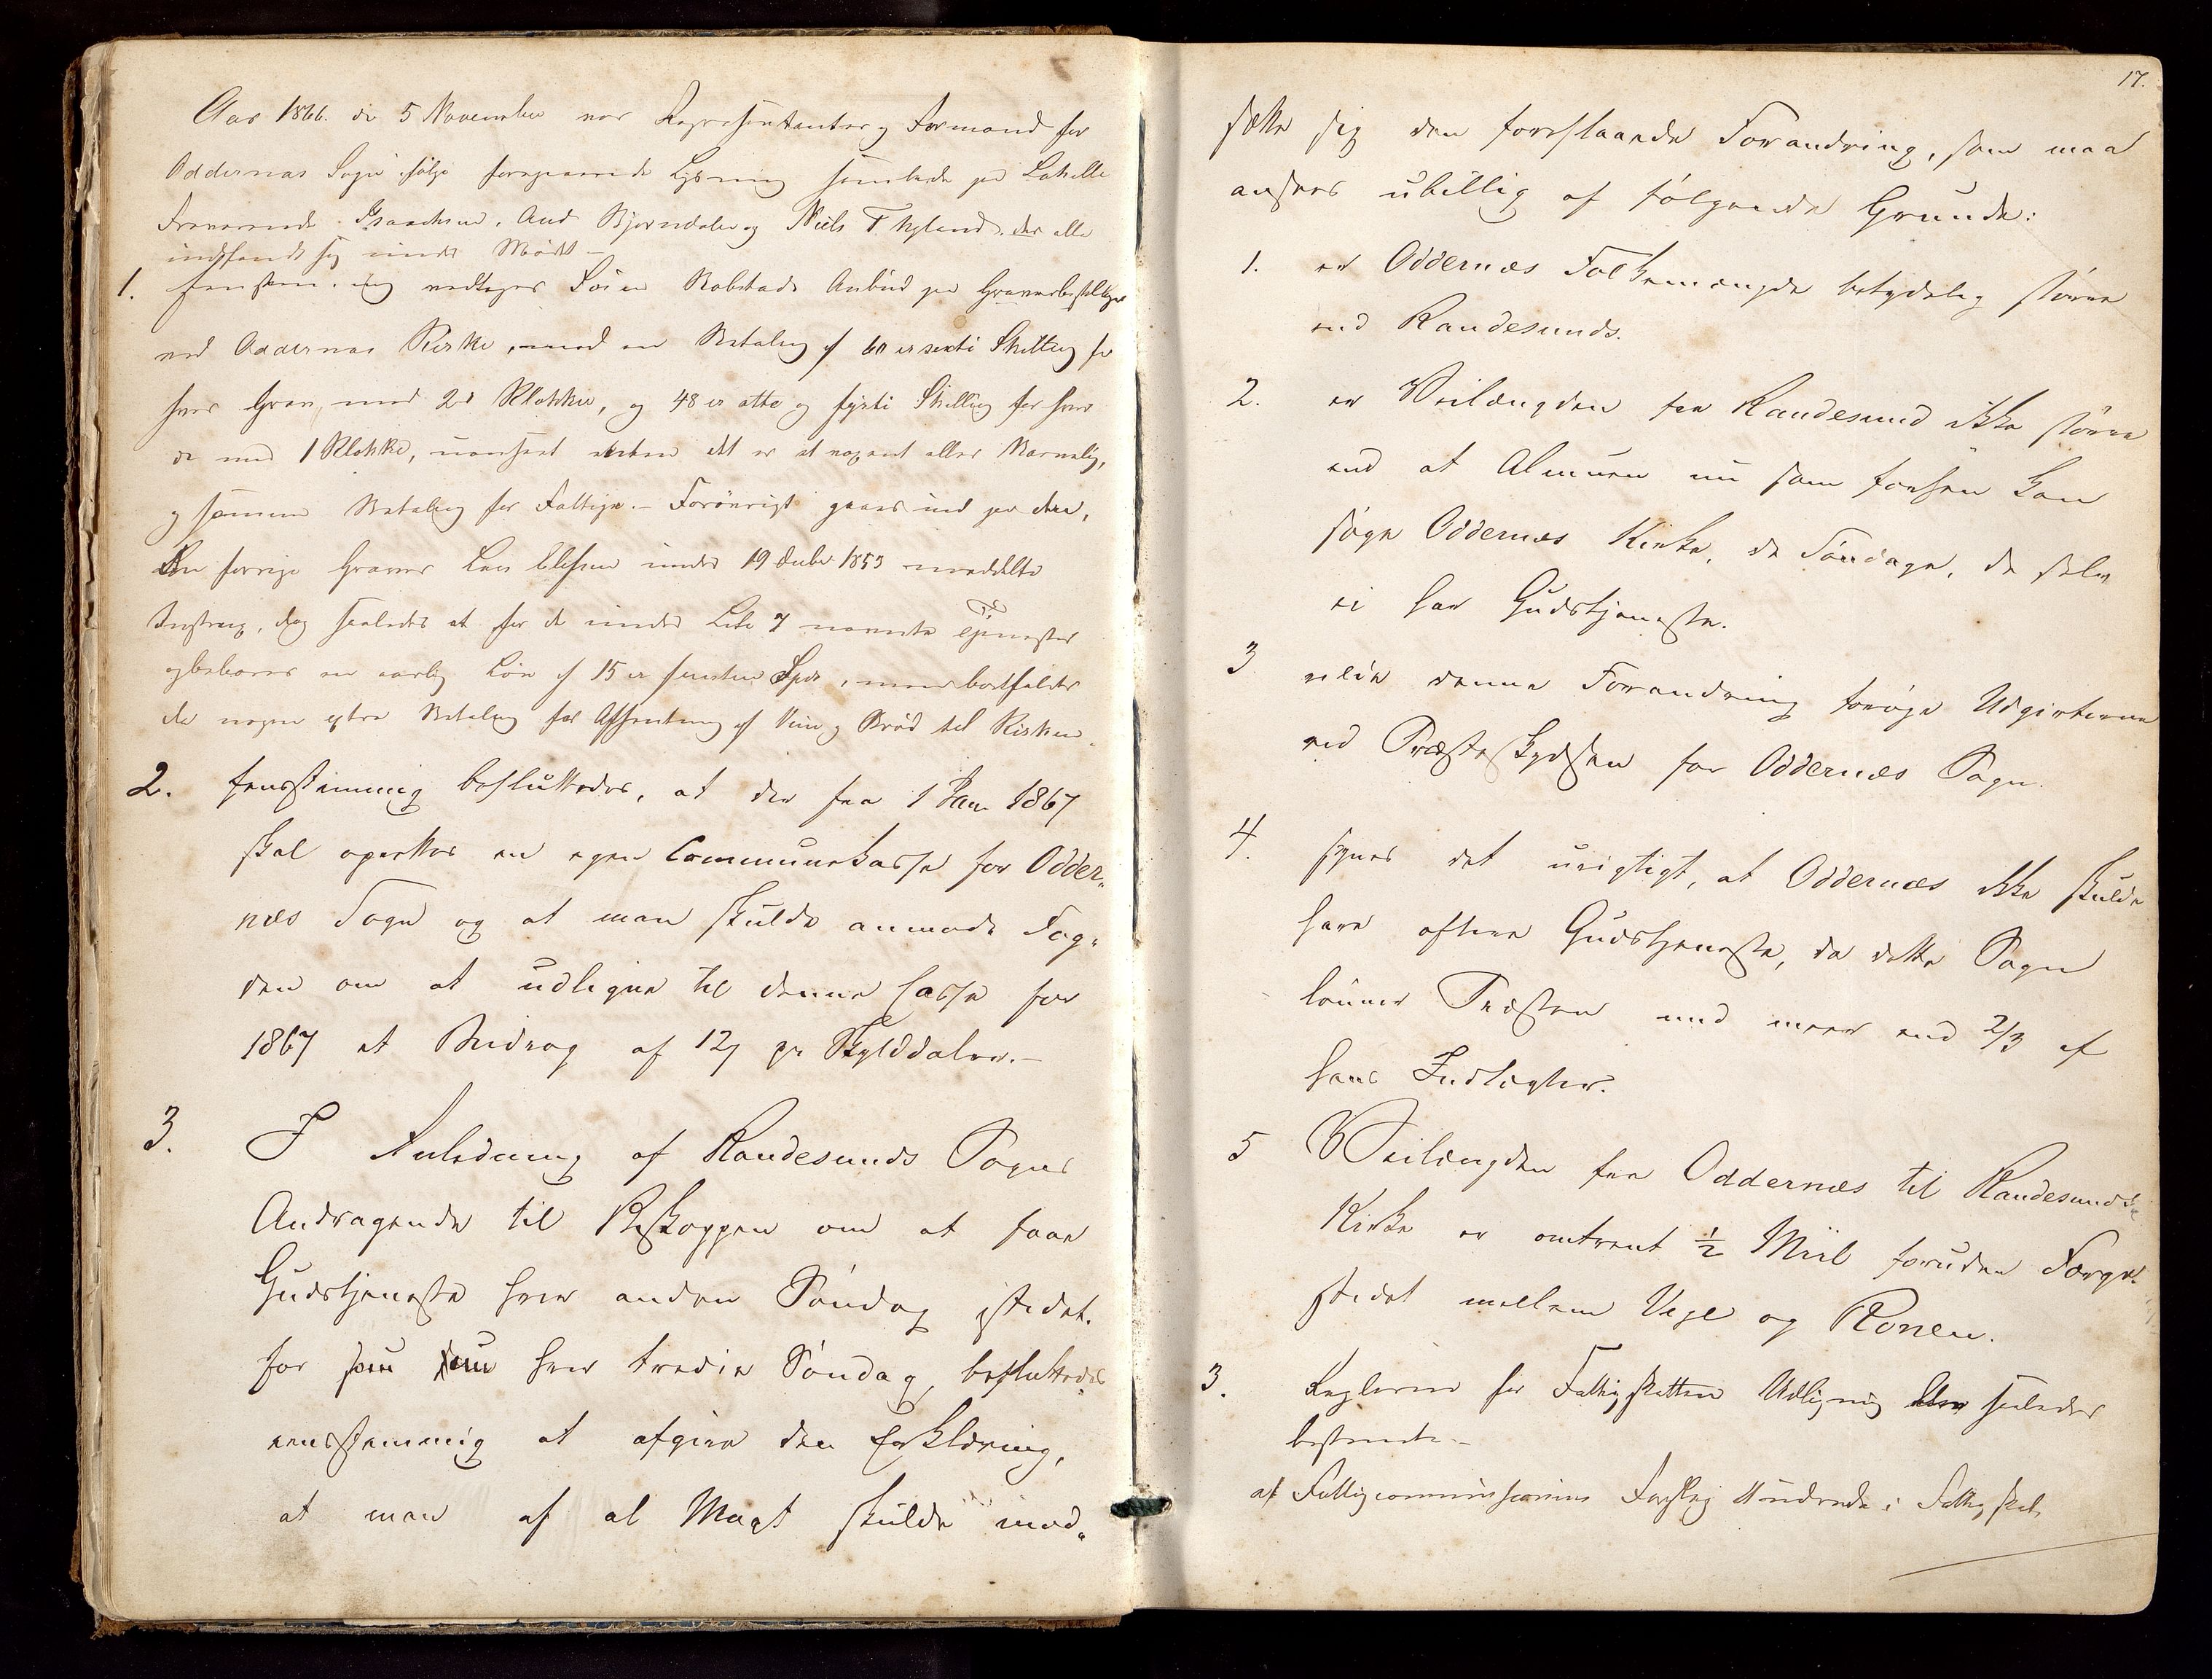 Aar 1866. de 5 November var Repræsentanter og Formænd for
Oddernæs Sogn ifølge foregaaende Lysning samlede paa Lahelle
Fraværende Isaachsen, And Bjørndalen og Niels T Kyland, der alle
indfandt sig under Mødet –
1. Eenstem. vedtages Søren Kobstads Anbud paa Graverbestillingen
ved Oddernæs Kirke, mod en Betaling af 60 er sexti Skilling for
hver Grav, med 2 Klokker, og 48 er otte og fyrti Skilling for hver
de med 1 Klokke, uanseet enten det er et voxent eller Barnelig,
og samme Betaling for Fattige. – Forøvrigt gaaes ud paa den,
den forrige Graver Lars Ellefsen under 19 Decbr 1853 meddelte
Instrux, dog saaledes at for de under Litr 7 nævnte Tjenester
opbebæres en aarlig Løn af 15 er femten Spdr, men bortfalder
da nogen extra Betaling for Afhentning af Viin og Brød til Kirken.
2. Eensstemmig besluttedes, at der fra 1 Jan 1867
skal oprettes en egen Communekasse for Odder„
næs Sogn og at man skulde anmode Fog„
den om at udligne til denne Casse for
1867 et Bidrag af 12 ß pr Skylddaler. –
3. I Anledning af Randesunds Sogns
Andragende til Biskoppen om at faae
Gudstjeneste hver anden Søndag istedet„
for som nu hver tredie Søndag, besluttedes
eensstemmig at afgive den Erklæring,
at man af al Magt skulde mod„
17.
sætte sig den foreslaaede Forandring, som maa
ansees ubillig af følgende Grunde:
1. er Oddernæs Folkemængde betydelig større
end Randesunds.
2. er Veilængden fra Randesund ikke større
end at Almuen nu som forhen kan
søge Oddernæs Kirke, de Søndage, de selv
ei har Gudstjeneste.
3 vilde denne Forandring forøge Udgifterne
ved Præsteskydsen for Oddernæs Sogn.
4. synes det urigtigt, at Oddernæs ikke skulde
have oftere Gudstjeneste, da dette Sogn
lønner Præsten med meer end 2/3 af
hans Indtægter.
5 Veilængden fra Oddernæs til Randesunds
Kirke er omtrent ½ Miil foruden Færge„
stedet mellem Vige og Ronen.
3. Reglerne for Fattigskattens Udligning saaledes
bestemte –
at Fattigcommissionens Forslag i Fattigskat